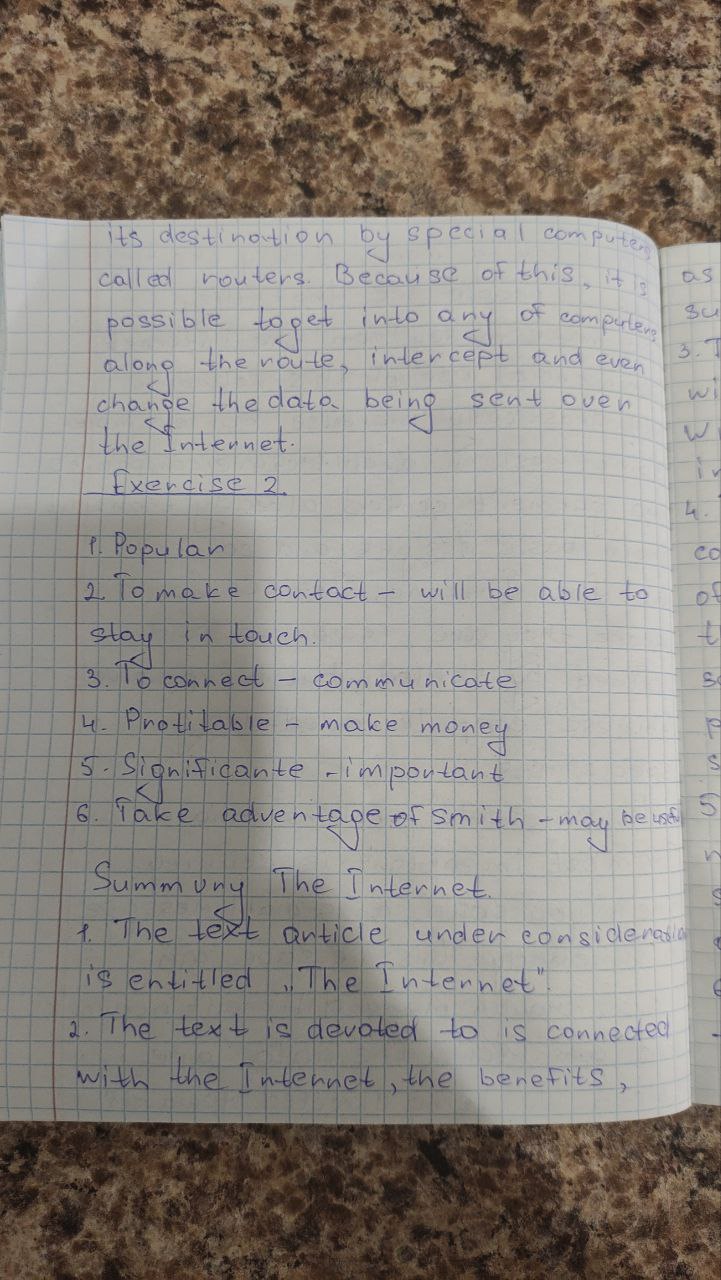 its destination by special computers
called routers. Because of this, it is
possible to get into any of computers
along the route, intercept and even
change the data being sent over
the Internet.
Exercise 2.
1. Popular
2. To make contact - will be able to
stay in touch.
3. To connect - communicate
4. Profitable - make money
5. Significante - important
6. Take adventage of smith - may be
Summury The Internet.
1. The text article under consideration
is entitled „The Internet".
2. The text is devoted to is connected
with the Internet, the benefits,
as
su
3. T
wi
w
in
4.
co
of
t
so
p
s
5
n
s